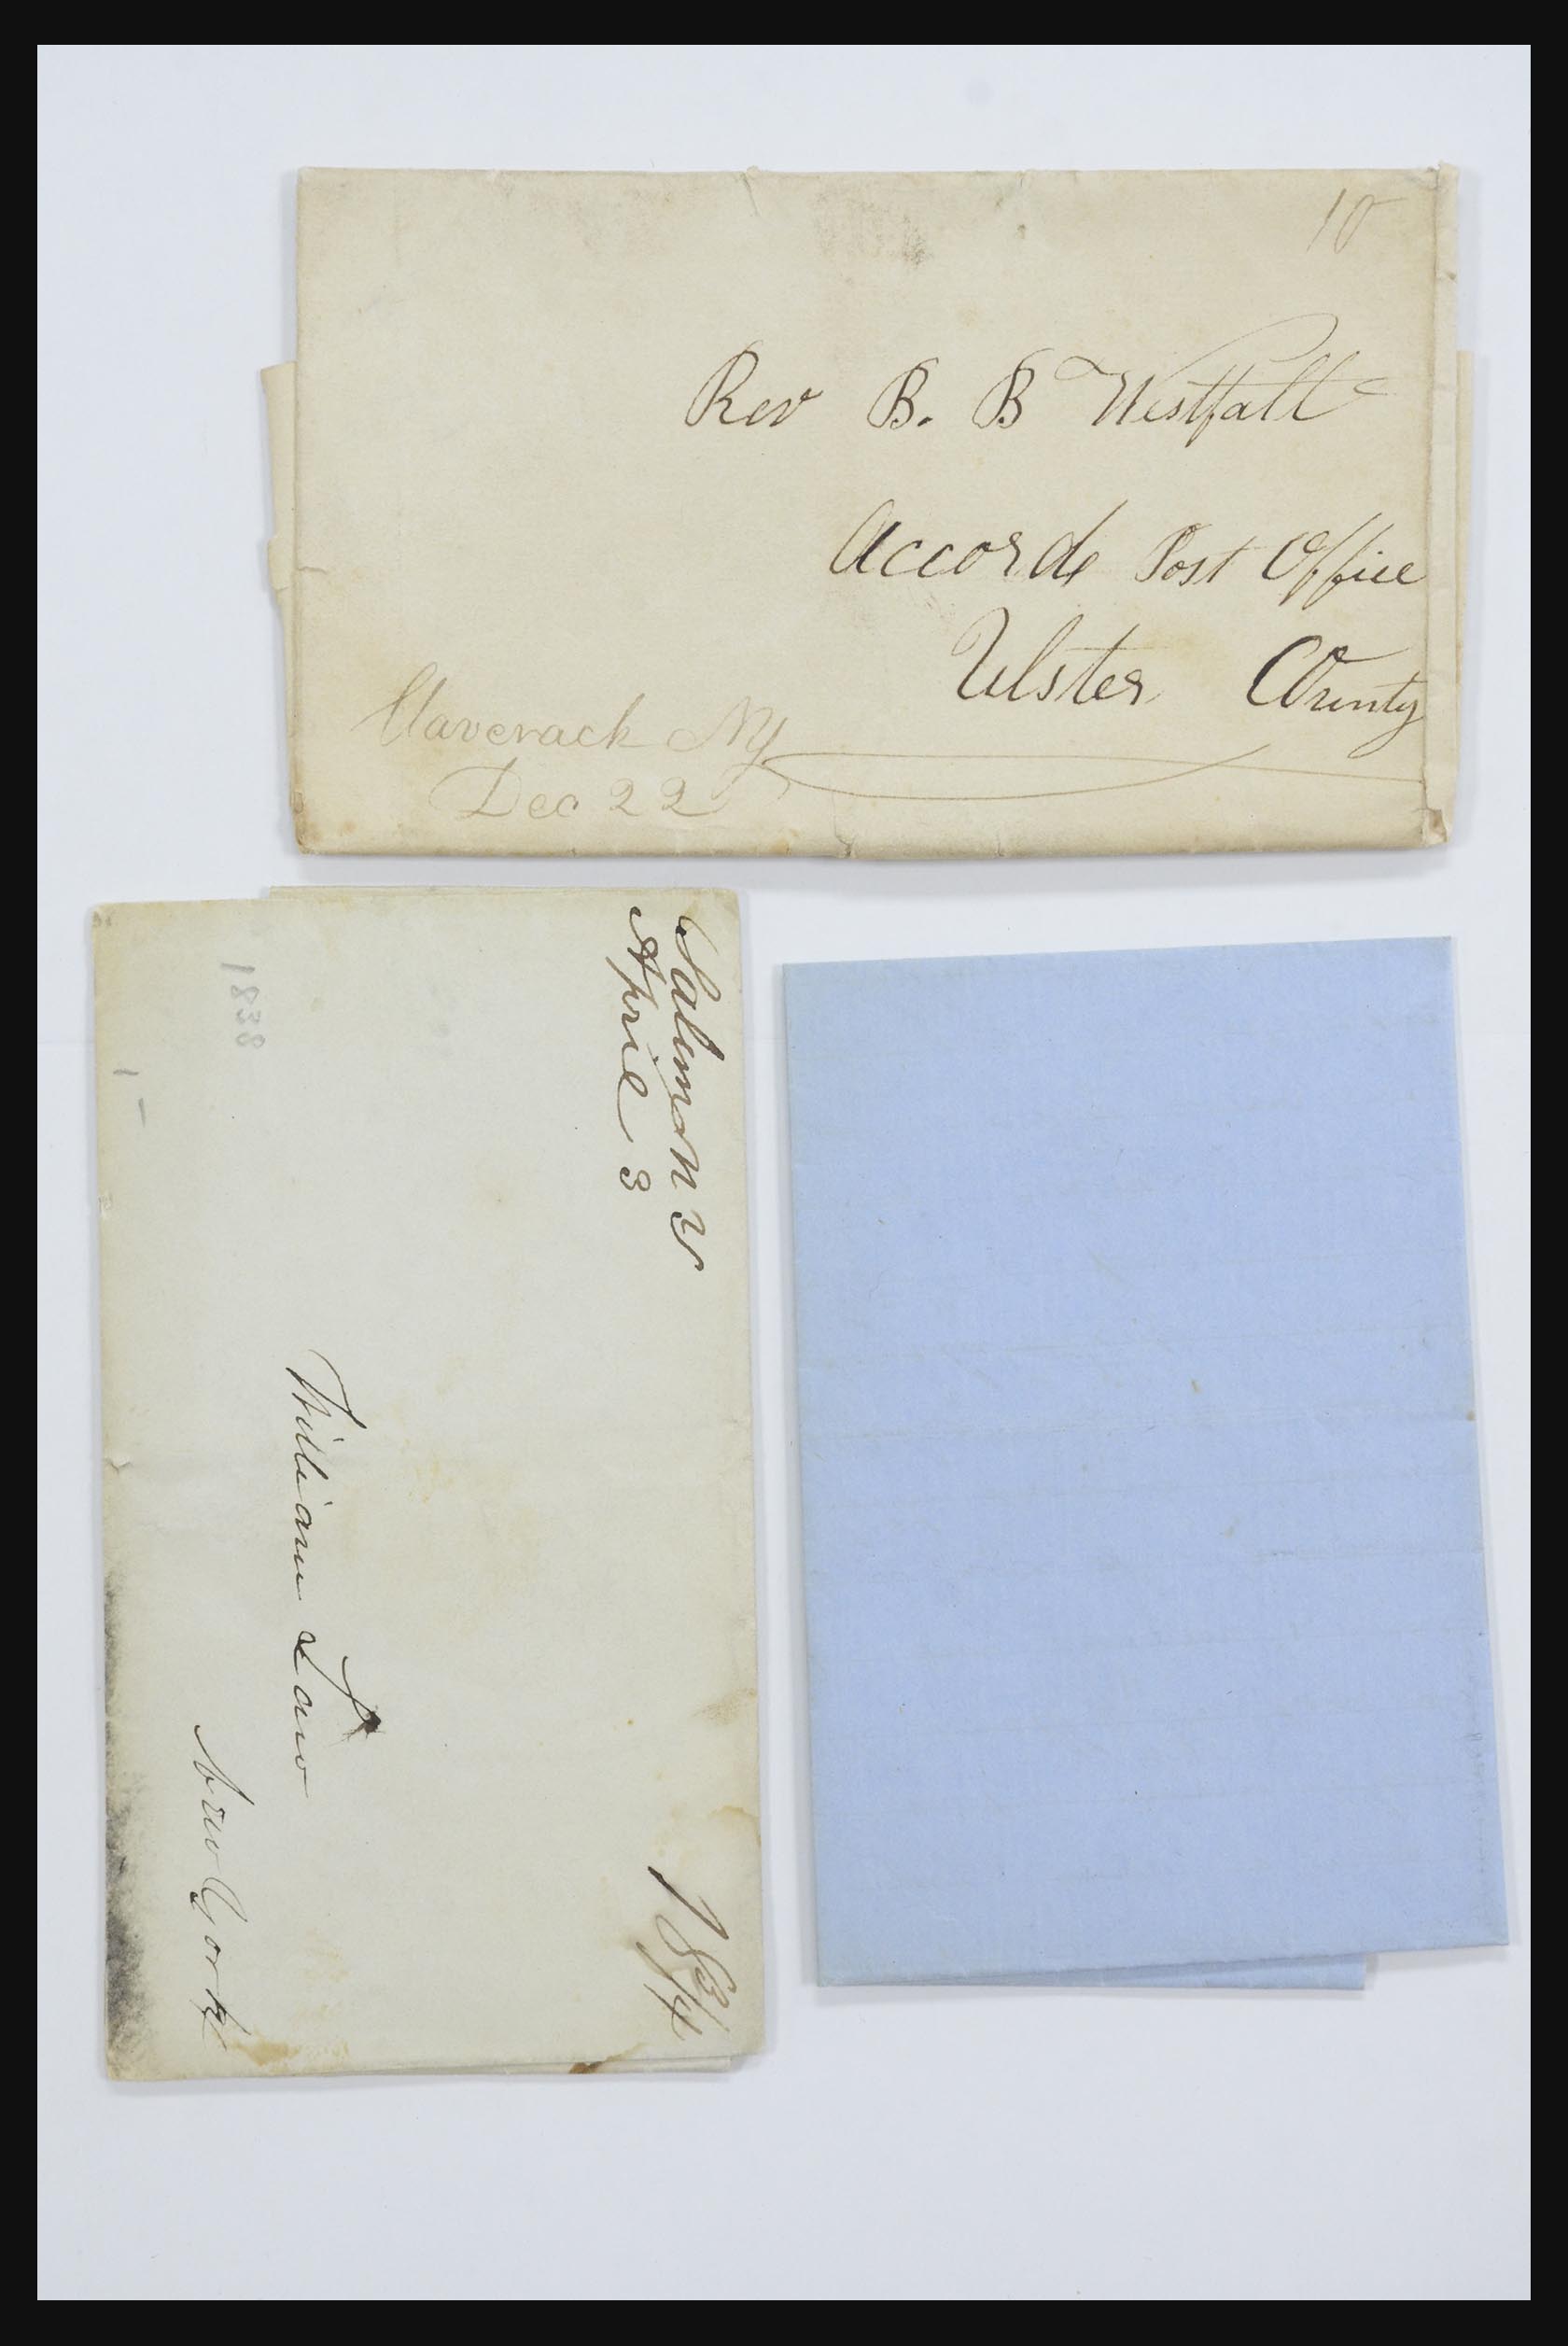 10
Rev B. B Westfall
Accord Post Office
Ulster County
Claverack NY
Dec 22
Salem N Y
April 3
18 3/4
William Law
New York
1838